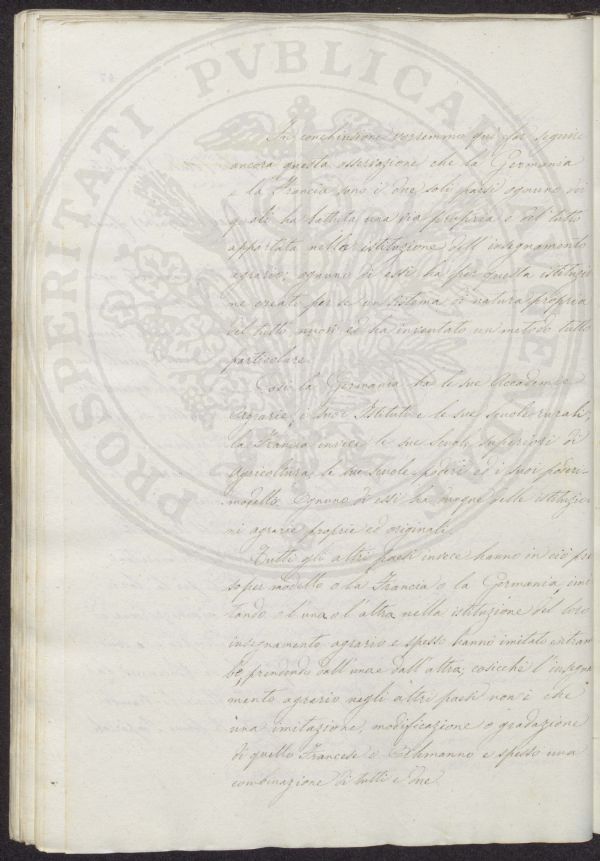 In conchiusione vorremmo qui far seguire
ancora questa osservazione che la Germania
e la Francia sono i due soli paesi ognuno dei
quali ha battuta una via propria e del tutto
appartata nella istituzione dell'insegnamento
agrario; ognuno di essi ha per questa istituzio
ne creati per sè un sistema di natura propria
del tutto nuovi ed ha inventato un metodo tutto
particolare.
Così la Germania ha le sue Accademie
Agrarie, i suoi Istituti e le sue scuole rurali,
la Francia invece le sue Scuole superiori di
Agricoltura, le sue scuole poderi ed i suoi poderi-
modello. Ognuno di essi ha dunque delle istituzio
ni agrarie proprie ed originali.
Tutti gli altri paesi invece hanno in ciò pre
so per modello o la Francia o la Germania, imi
tando o l'una o l'altra nella istituzione del loro
insegnamento agrario e spesso hanno imitato entram
be, prendendo dall'una e dall'altra; cosicchè l'insegna
mento agrario negli altri paesi non è che
una imitazione, modificazione o gradazione
di quello Francese o Allemanno e spesso una
combinazione di tutti e due.
PROSPERITATI PVBLICAE AVGENDAE